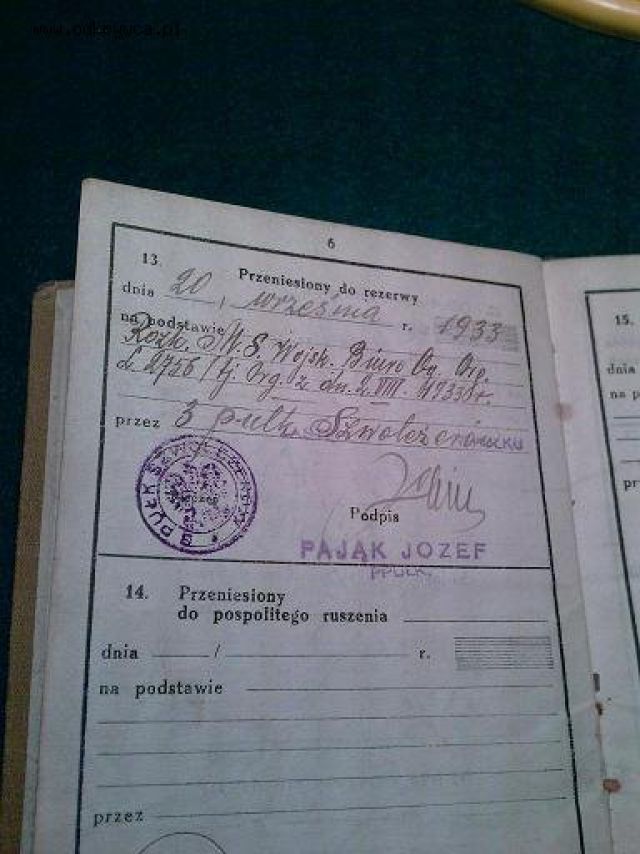 6
13. Przeniesiony do rezerwy
dnia 20, września r. 1933
na podstawie
Rozk. M. S. Wojsk. Biuro Og. Org.
L 2756/tj. Org z dn. 2.VIII. 1933 r.
przez 3 pułk Szwoleżerów
PUŁK
Podpis
PAJĄK JOZEF
PPUŁK.
14. Przeniesiony
do pospolitego ruszenia
dnia / r.
na podstawie
przez
15.
dnia
na p
pr